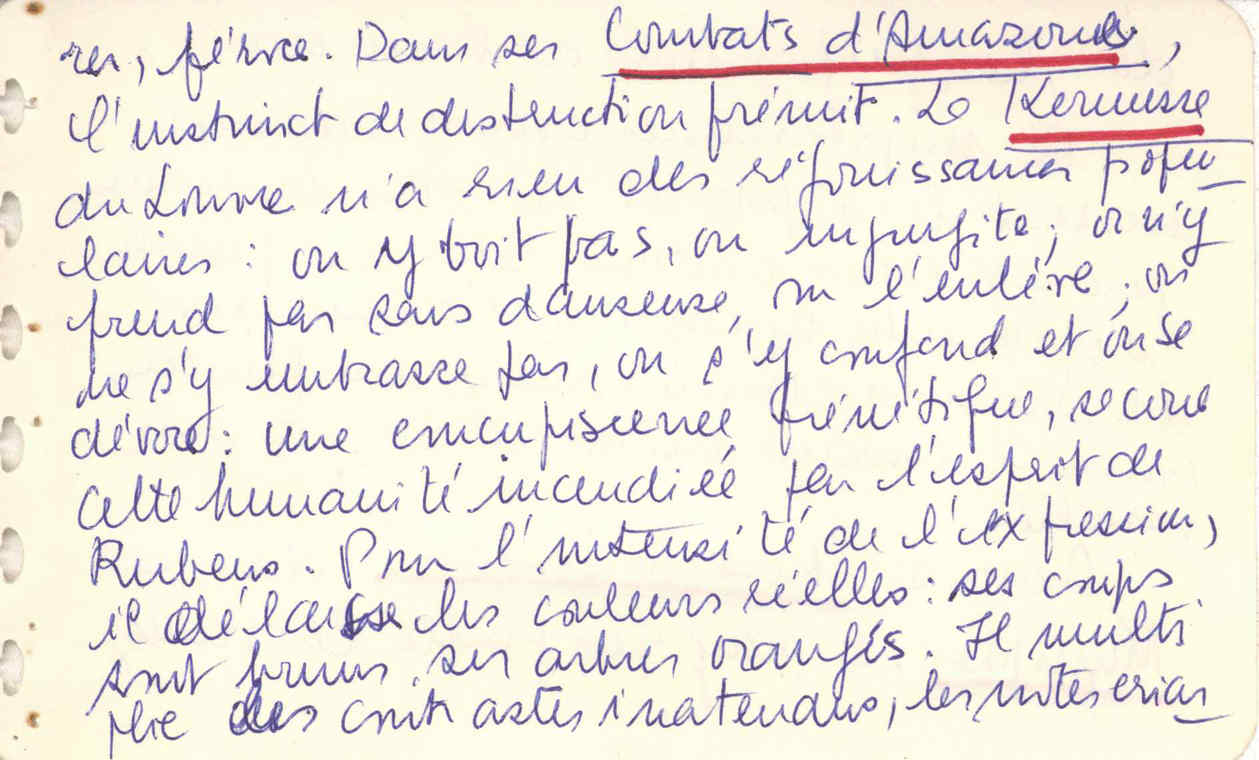 res, féroce. Dans ses Combats d'Amazones,
l'instinct de destruction frémit. La Kermesse
du Louvre n'a rien des réjouissances popu-
laires : on n'y boit pas, on ingurgite ; on n'y
prend pas sans danseuse, on l'enlève ; on
ne s'y embrasse pas, on s'y confond et on se
dévore : une concupiscence frénétique, secoue
cette humanité incendiée par l'esprit de
Rubens. Pour l'intensité de l'expression,
il délaisse les couleurs réelles : ses corps
sont bruns, ses arbres orangés. Il multi
plie des contrastes inattendus, les notes crian-